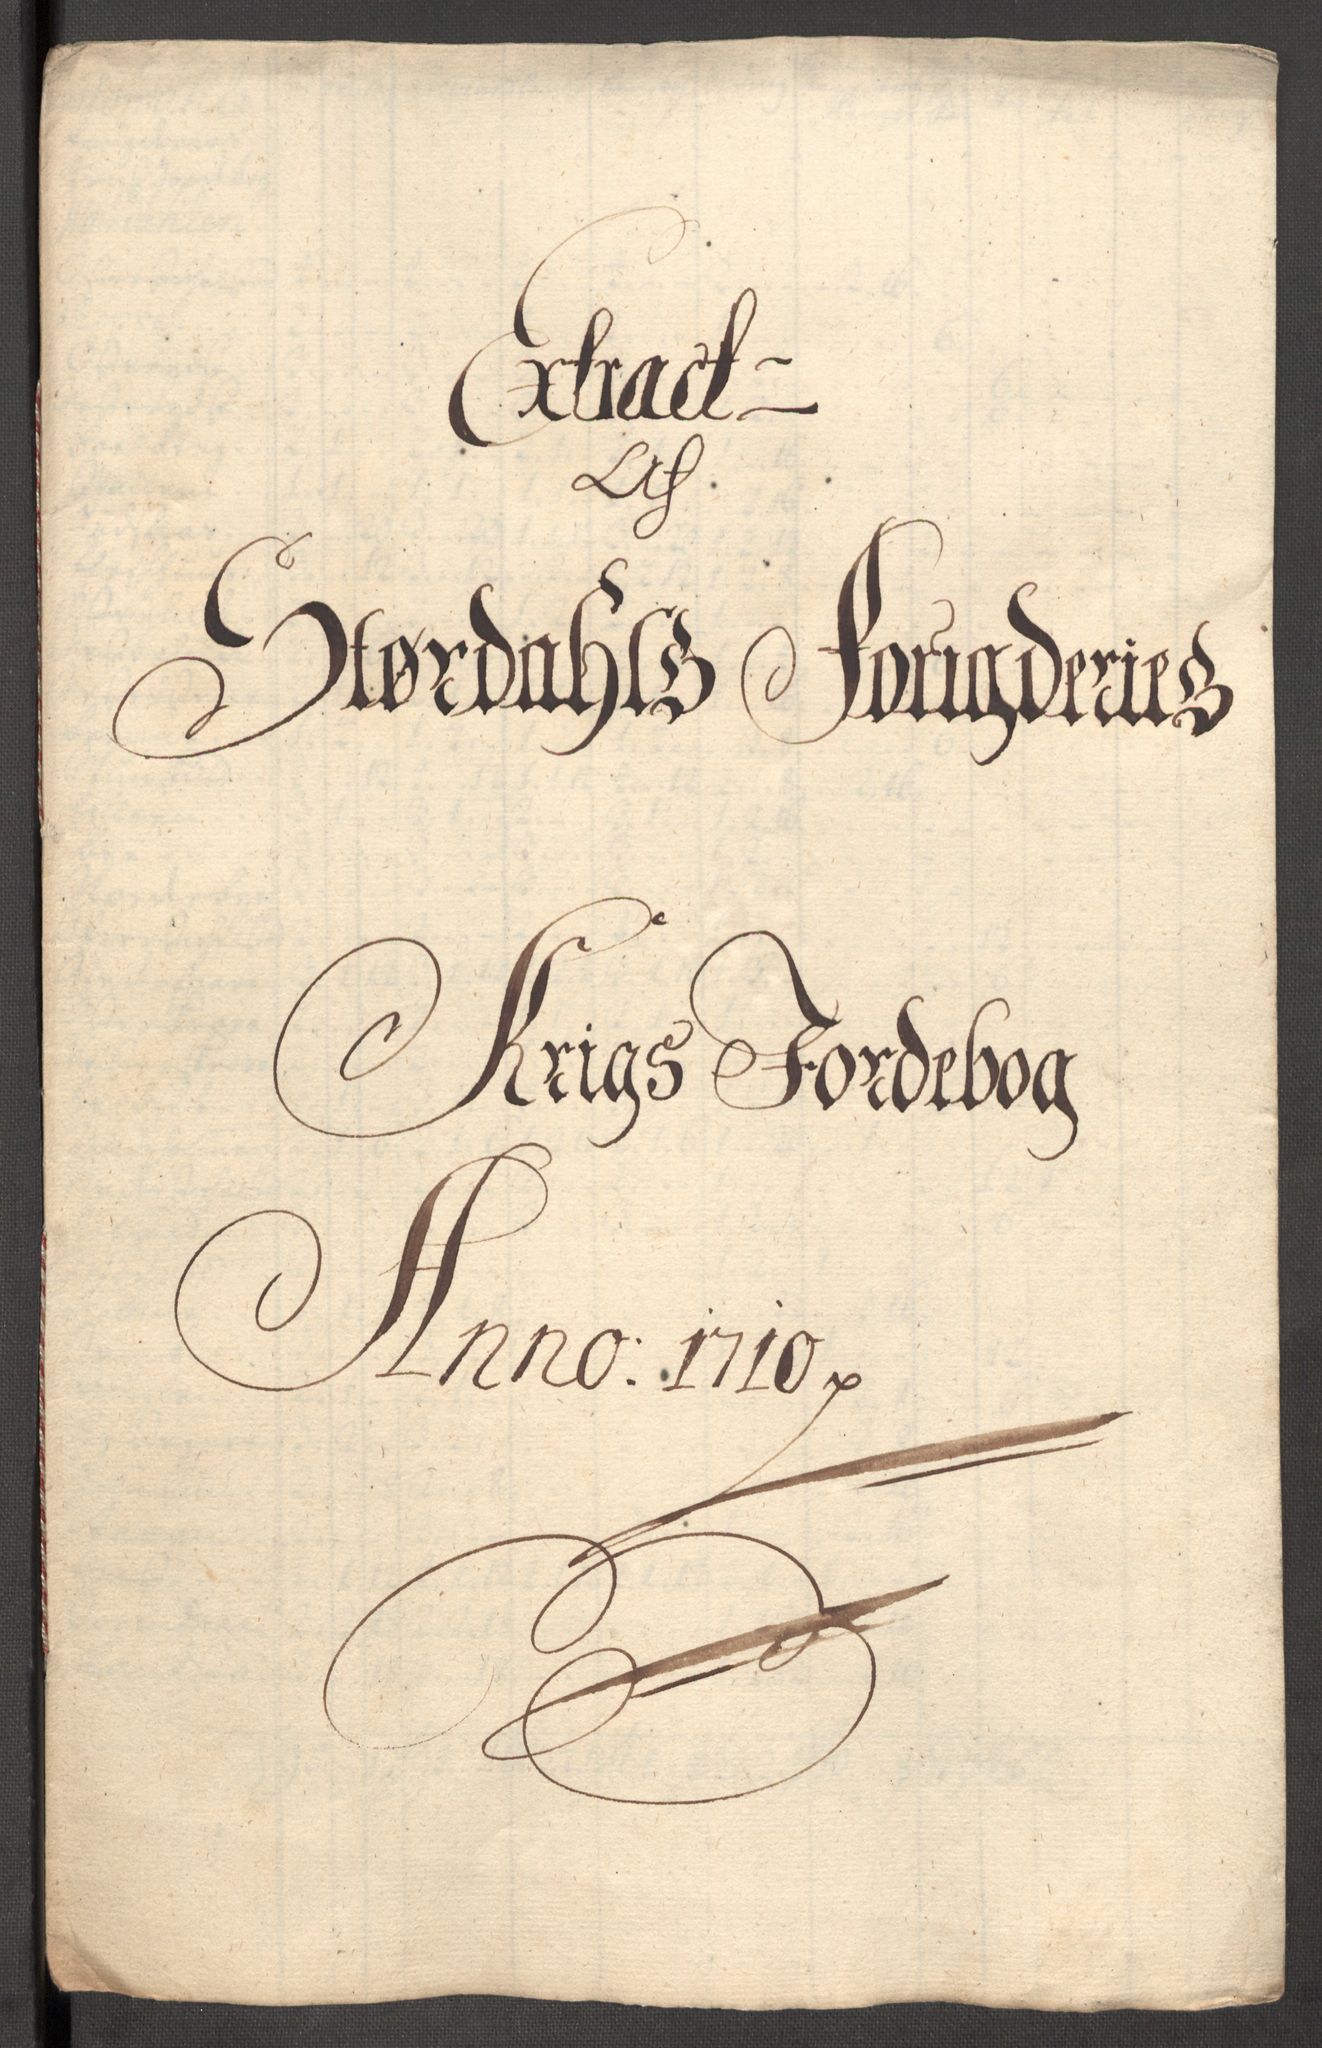 Extract
Af
Størdahls Fougderies
Krigs Jordebog
Anno: 1710